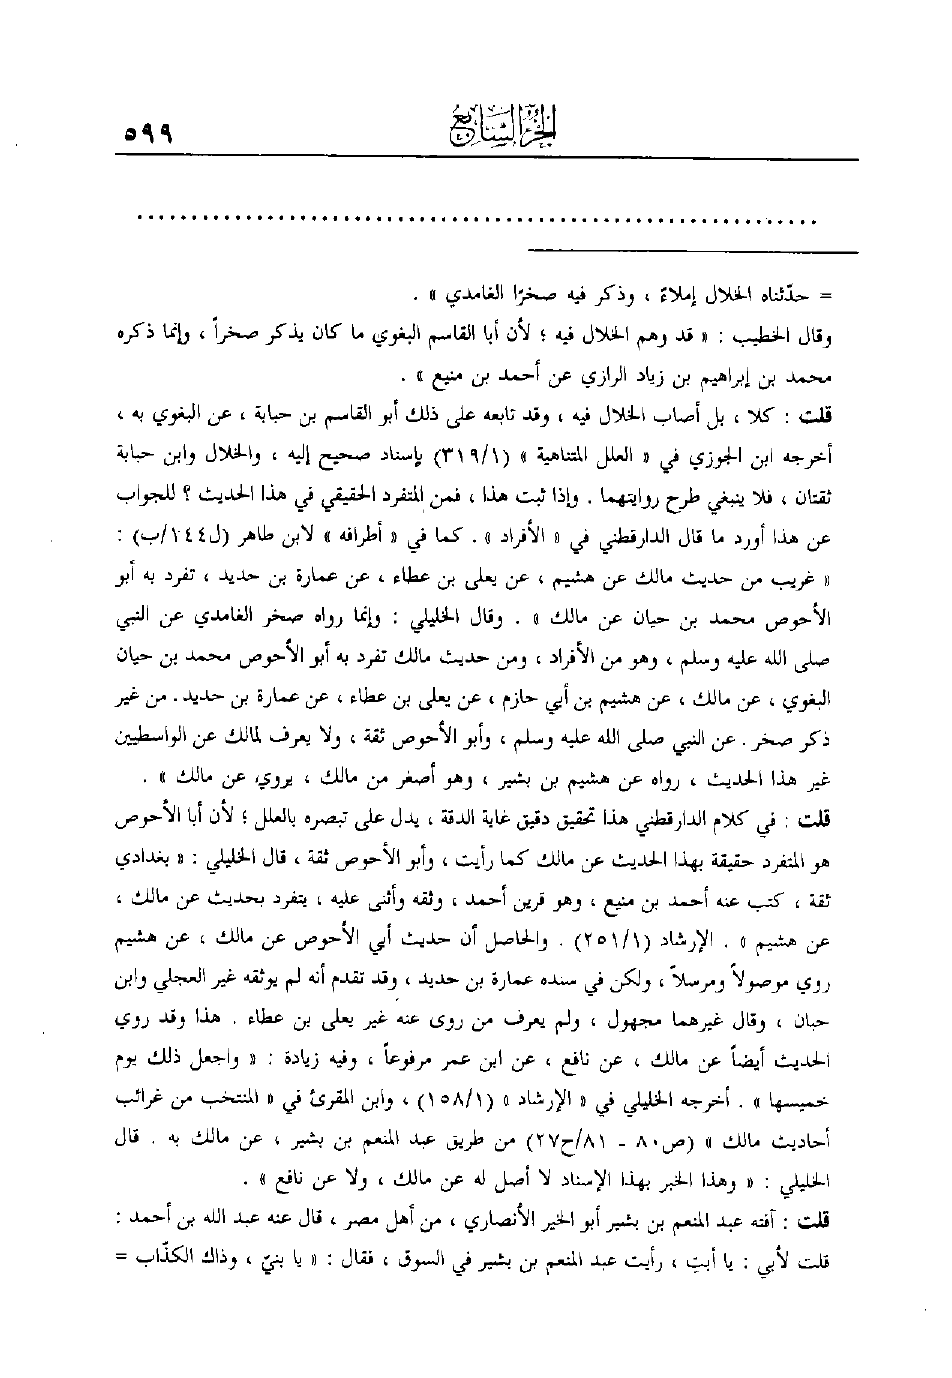 الجزء السابع
٥٩٩
= حدّثناه الخلال إملاءً ، وذكر فيه صخرًا الغامدي » .
وقال الخطيب : « قد وهم الخلال فيه ؛ لأن أبا القاسم البغوي ما كان يذكر صخراً ، وإنما ذكره
محمد بن إبراهيم بن زياد الرازي عن أحمد بن منيع » .
قلت : كلا ، بل أصاب الخلال فيه ، وقد تابعه على ذلك أبو القاسم بن حبابة ، عن البغوي به ،
أخرجه ابن الجوزي في « العلل المتناهية » (٣١٩/١) بإسناد صحيح إليه ، والخلال وابن حبابة
ثقتان ، فلا ينبغي طرح روايتهما . وإذا ثبت هذا ، فمن المتفرد الحقيقي في هذا الحديث ؟ للجواب
عن هذا أورد ما قال الدارقطني في « الأفراد » . كما في « أطرافه » لابن طاهر (ل١٤٤/ب) :
« غريب من حديث مالك عن هشيم ، عن يعلى بن عطاء ، عن عمارة بن حديد ، تفرد به أبو
الأحوص محمد بن حيان عن مالك » . وقال الخليلي : وإنما رواه صخر الغامدي عن النبي
صلى الله عليه وسلم ، وهو من الأفراد ، ومن حديث مالك تفرد به أبو الأحوص محمد بن حيان
البغوي ، عن مالك ، عن هشيم بن أبي حازم ، عن يعلى بن عطاء ، عن عمارة بن حديد . من غير
ذكر صخر . عن النبي صلى الله عليه وسلم ، وأبو الأحوص ثقة ، ولا يعرف لمالك عن الواسطيين
غير هذا الحديث ، رواه عن هشيم بن بشير ، وهو أصغر من مالك ، يروي عن مالك » .
قلت : في كلام الدارقطني هذا تحقيق دقيق غاية الدقة ، يدل على تبصره بالعلل ؛ لأن أبا الأحوص
هو المتفرد حقيقة بهذا الحديث عن مالك كما رأيت ، وأبو الأحوص ثقة ، قال الخليلي : « بغدادي
ثقة ، كتب عنه أحمد بن منيع ، وهو قرين أحمد ، وثقه وأثنى عليه ، يتفرد بحديث عن مالك ،
عن هشيم » . الإرشاد (٢٥١/١) . والحاصل أن حديث أبي الأحوص عن مالك ، عن هشيم
روي موصولاً ومرسلاً ، ولكن في سنده عمارة بن حديد ، وقد تقدم أنه لم يوثقه غير العجلي وابن
حبان ، وقال غيرهما مجهول ، ولم يعرف من روى عنه غير يعلى بن عطاء . هذا وقد روي
الحديث أيضاً عن مالك ، عن نافع ، عن ابن عمر مرفوعاً ، وفيه زيادة : « واجعل ذلك يوم
خميسها » . أخرجه الخليلي في « الإرشاد » (١٥٨/١) ، وابن المقرئ في « المنتخب من غرائب
أحاديث مالك » (ص٨٠ - ٨١/ح٢٧) من طريق عبد المنعم بن بشير ، عن مالك به . قال
الخليلي : « وهذا الخبر بهذا الإسناد لا أصل له عن مالك ، ولا عن نافع » .
قلت : آفته عبد المنعم بن بشير أبو الخير الأنصاري ، من أهل مصر ، قال عنه عبد الله بن أحمد :
قلت لأبي : يا أبتِ ، رأيت عبد المنعم بن بشير في السوق ، فقال : « يا بنيّ ، وذاك الكذّاب =